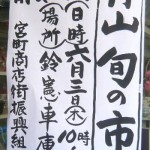 山旬の市
(日時)六月三日(木)10時
(場所)鈴憲車庫
前
宮町商店街振興組